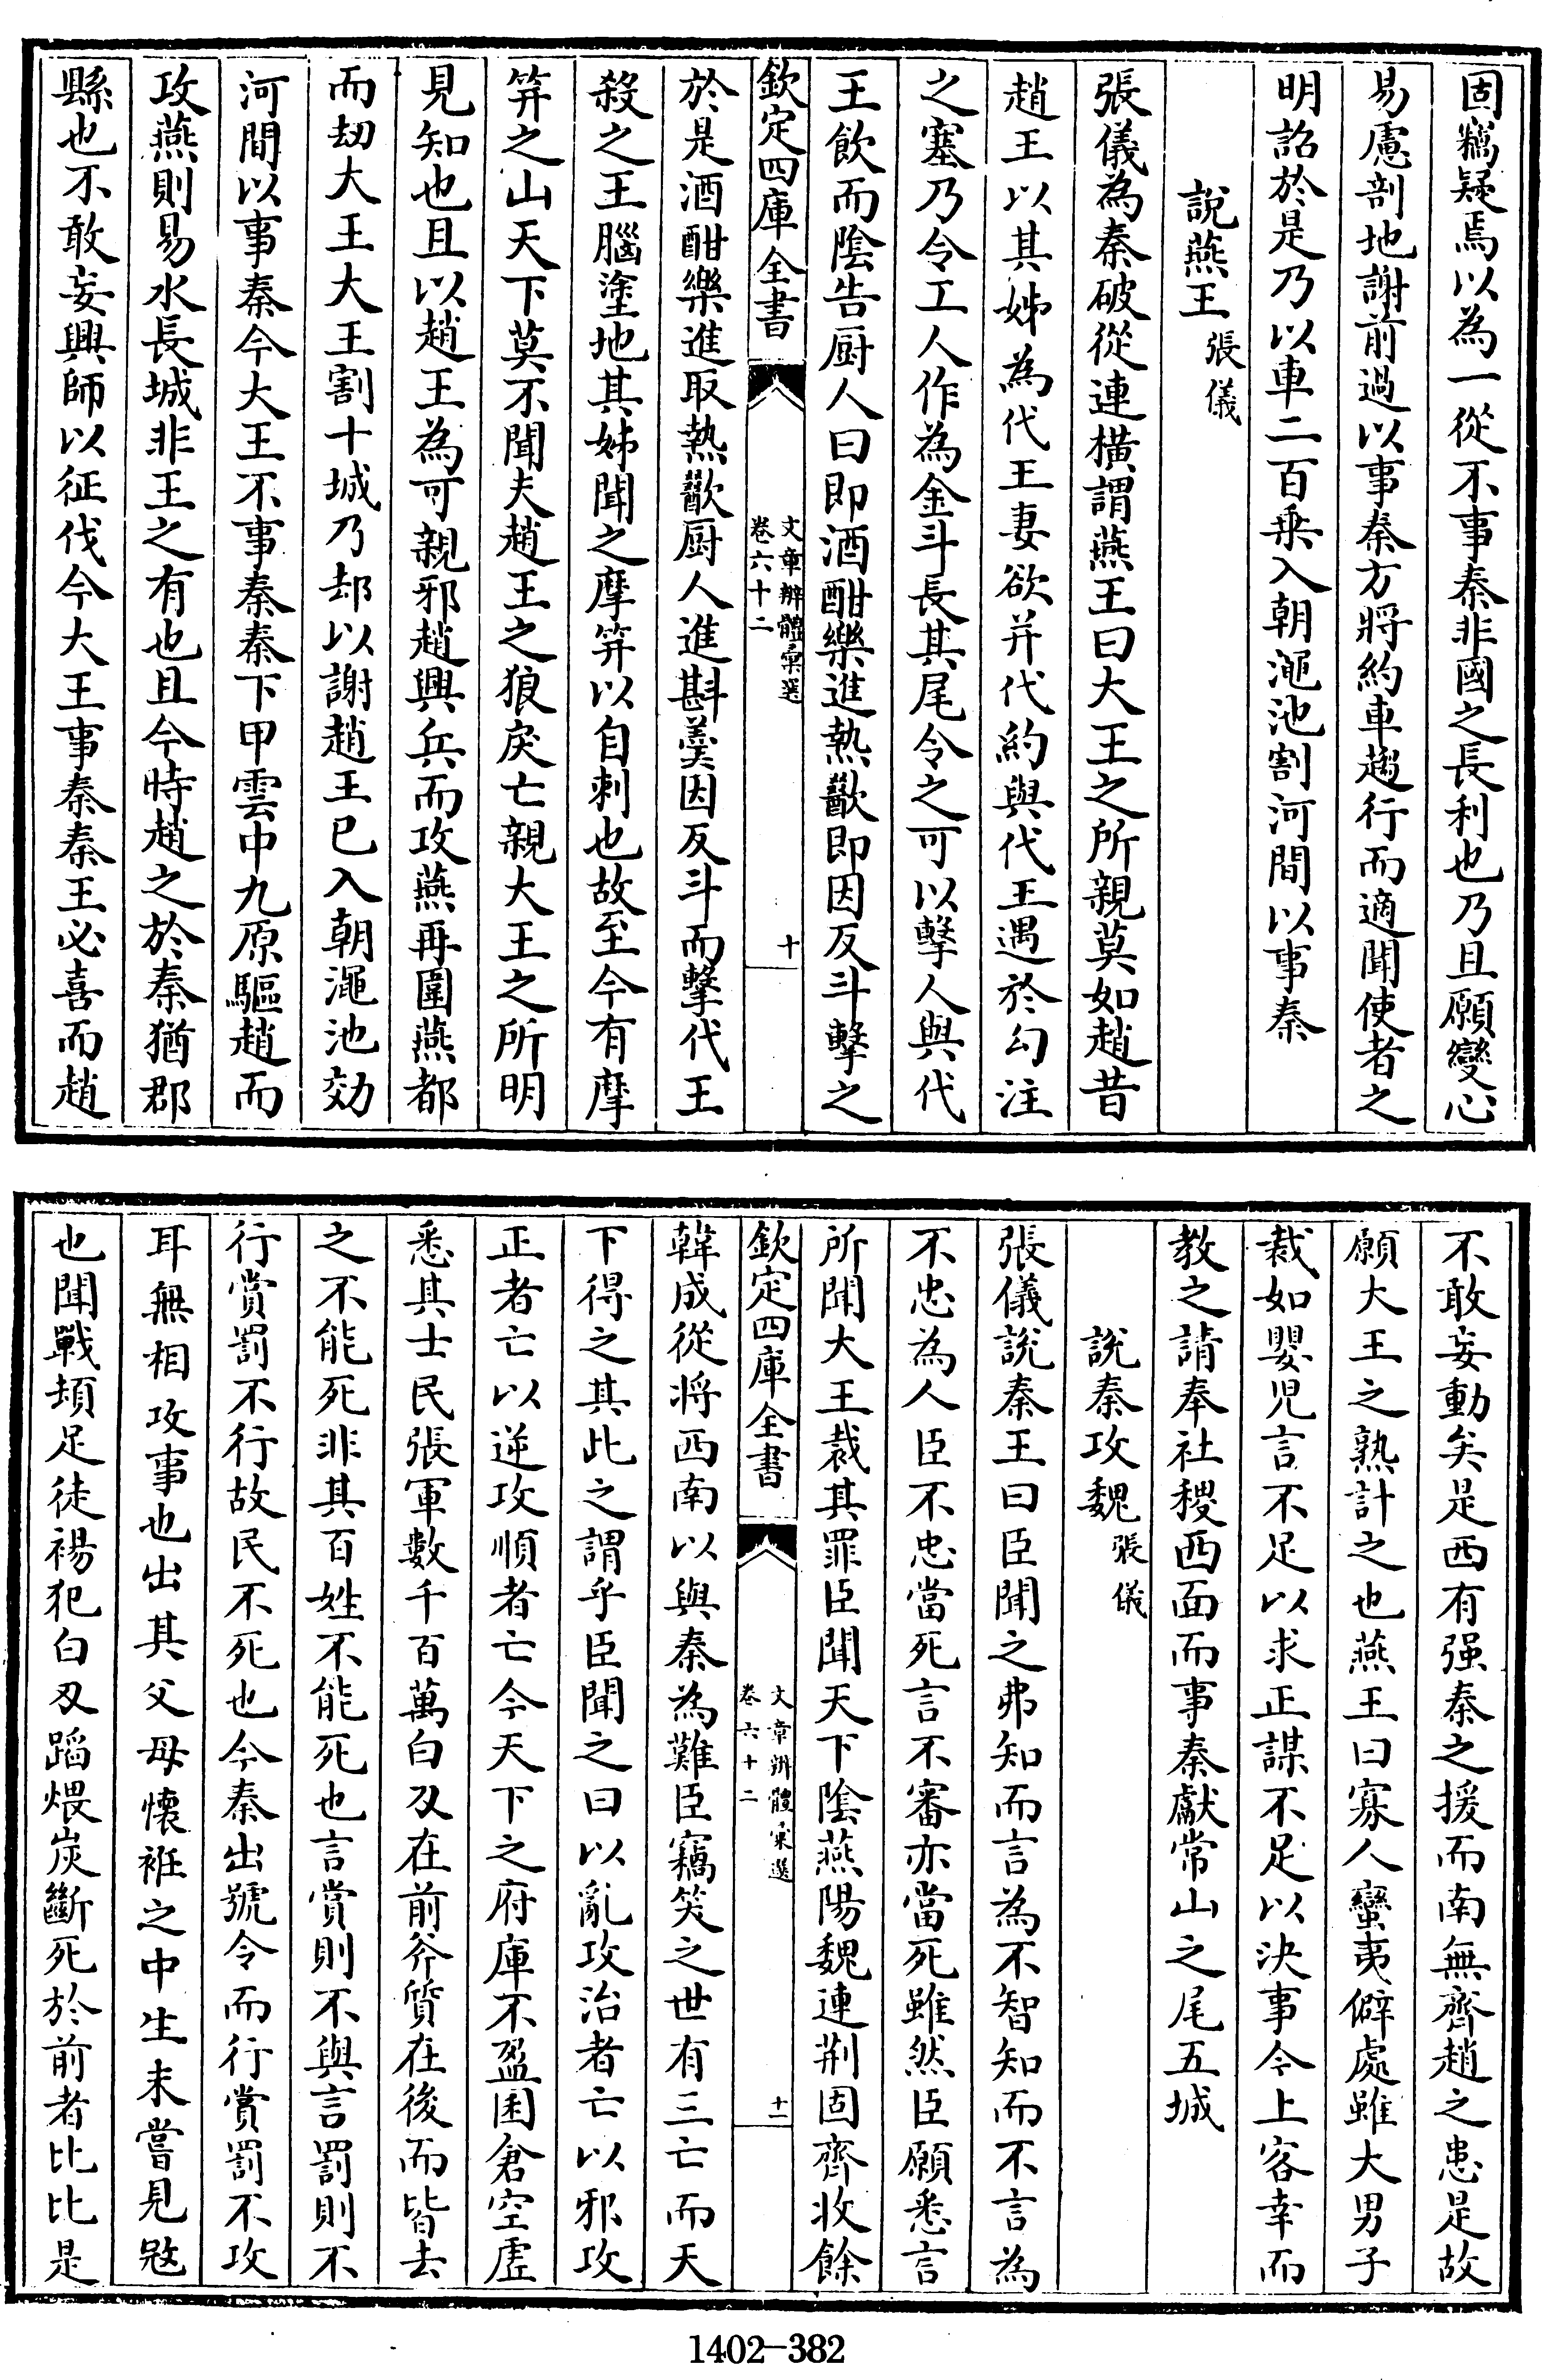 固竊疑焉以為一從不事秦非國之長利也乃且願變心
易慮剖地謝前過以事秦方將約車趨行而適聞使者之
明詔於是乃以車二百乗入朝澠池割河間以事秦
說燕王張儀
張儀為秦破從連横謂燕王曰大王之所親莫如趙昔
趙王以其姊為代王妻欲并代約與代王遇於勾注
之塞乃令工人作為金斗長其尾令之可以擊人與代
王飲而隂告厨人曰即酒酣樂進熱歠即因反斗擊之
欽定四庫全書
文章辨體彚選
卷六十二
十
於是酒酣樂進取熱歠厨人進斟羹因反斗而擊代王
殺之王腦塗地其姊聞之摩笄以自刺也故至今有摩
笄之山天下莫不聞夫趙王之狼戾亡親大王之所明
見知也且以趙王為可親邪趙興兵而攻燕再圍燕都
而刼大王大王割十城乃却以謝趙王已入朝澠池効
河間以事秦今大王不事秦秦下甲雲中九原驅趙而
攻燕則易水長城非王之有也且今時趙之於秦猶郡
縣也不敢妄興師以征伐今大王事秦秦王必喜而趙
不敢妄動矣是西有强秦之援而南無齊趙之患是故
願大王之熟計之也燕王曰寡人蠻夷僻處雖大男子
裁如嬰児言不足以求正謀不足以決事今上客幸而
教之請奉社稷西面而事秦獻常山之尾五城
說秦攻魏張儀
張儀說秦王曰臣聞之弗知而言為不智知而不言為
不忠為人臣不忠當死言不審亦當死雖然臣願悉言
所聞大王裁其罪臣聞天下隂燕陽魏連荆固齊收餘
欽定四庫全書
文章辨體彚選
卷六十二
十一
韓成從將西南以與秦為難臣竊笑之世有三亡而天
下得之其此之謂乎臣聞之曰以亂攻治者亡以邪攻
正者亡以逆攻順者亡今天下之府庫不盈囷倉空虚
悉其士民張軍數千百萬白刃在前斧質在後而皆去
之不能死非其百姓不能死也言賞則不與言罰則不
行賞罰不行故民不死也今秦出號令而行賞罰不攻
耳無相攻事也出其父母懷袵之中生未嘗見冦
也聞戰頓足徒裼犯白刃蹈煨炭斷死於前者比比是
1402-382